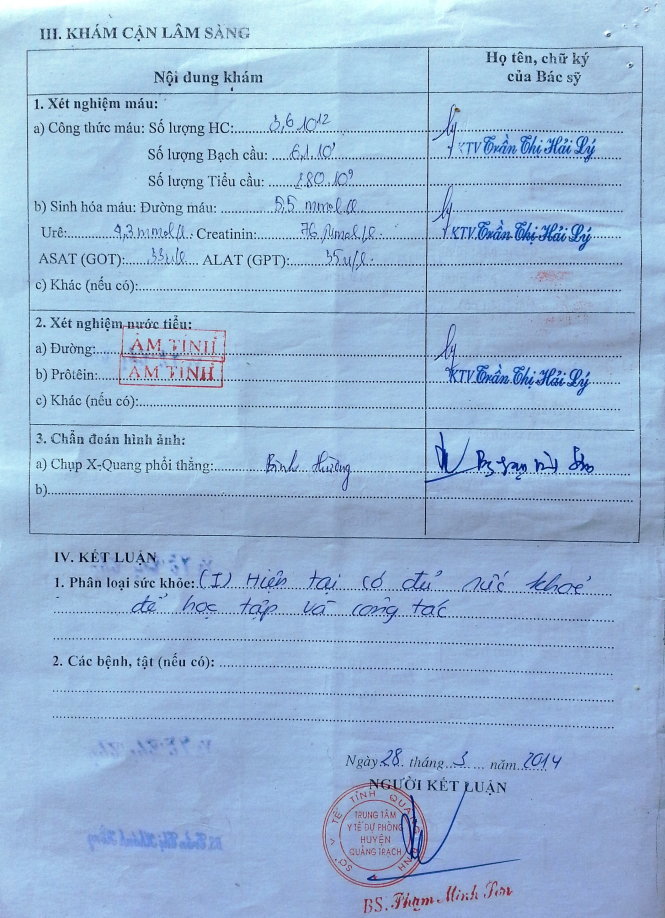 III. KHÁM CẬN LÂM SÀNG
Nội dung khám
Họ tên, chữ ký
của Bác sỹ
1. Xét nghiệm máu:
a) Công thức máu: Số lượng HC: 3,6.10¹²
KTV Trần Thị Hải Lý
Số lượng Bạch cầu: 6,1.10⁹
Số lượng Tiểu cầu: 180.10⁹
b) Sinh hóa máu: Đường máu: 5,5 mmol/l
Urê: 4,3 mmol/l. Creatinin: 76 µmol/l.
KTV Trần Thị Hải Lý
ASAT (GOT): 33u/l ALAT (GPT): 35u/l.
c) Khác (nếu có):
2. Xét nghiệm nước tiểu:
a) Đường: ÂM TÍNH
b) Prôtêin: ÂM TÍNH
KTV Trần Thị Hải Lý
c) Khác (nếu có):
3. Chẩn đoán hình ảnh:
a) Chụp X-Quang phổi thẳng: Bình thường
b)
IV. KẾT LUẬN
1. Phân loại sức khỏe: (I) Hiện tại có đủ sức khoẻ
để học tập và công tác
2. Các bệnh, tật (nếu có):
Ngày 28 tháng 3 năm 2014
NGƯỜI KẾT LUẬN
SỞ Y TẾ TỈNH QUẢNG BÌNH
TRUNG TÂM
Y TẾ DỰ PHÒNG
HUYỆN
QUẢNG TRẠCH
BS. Phạm Minh